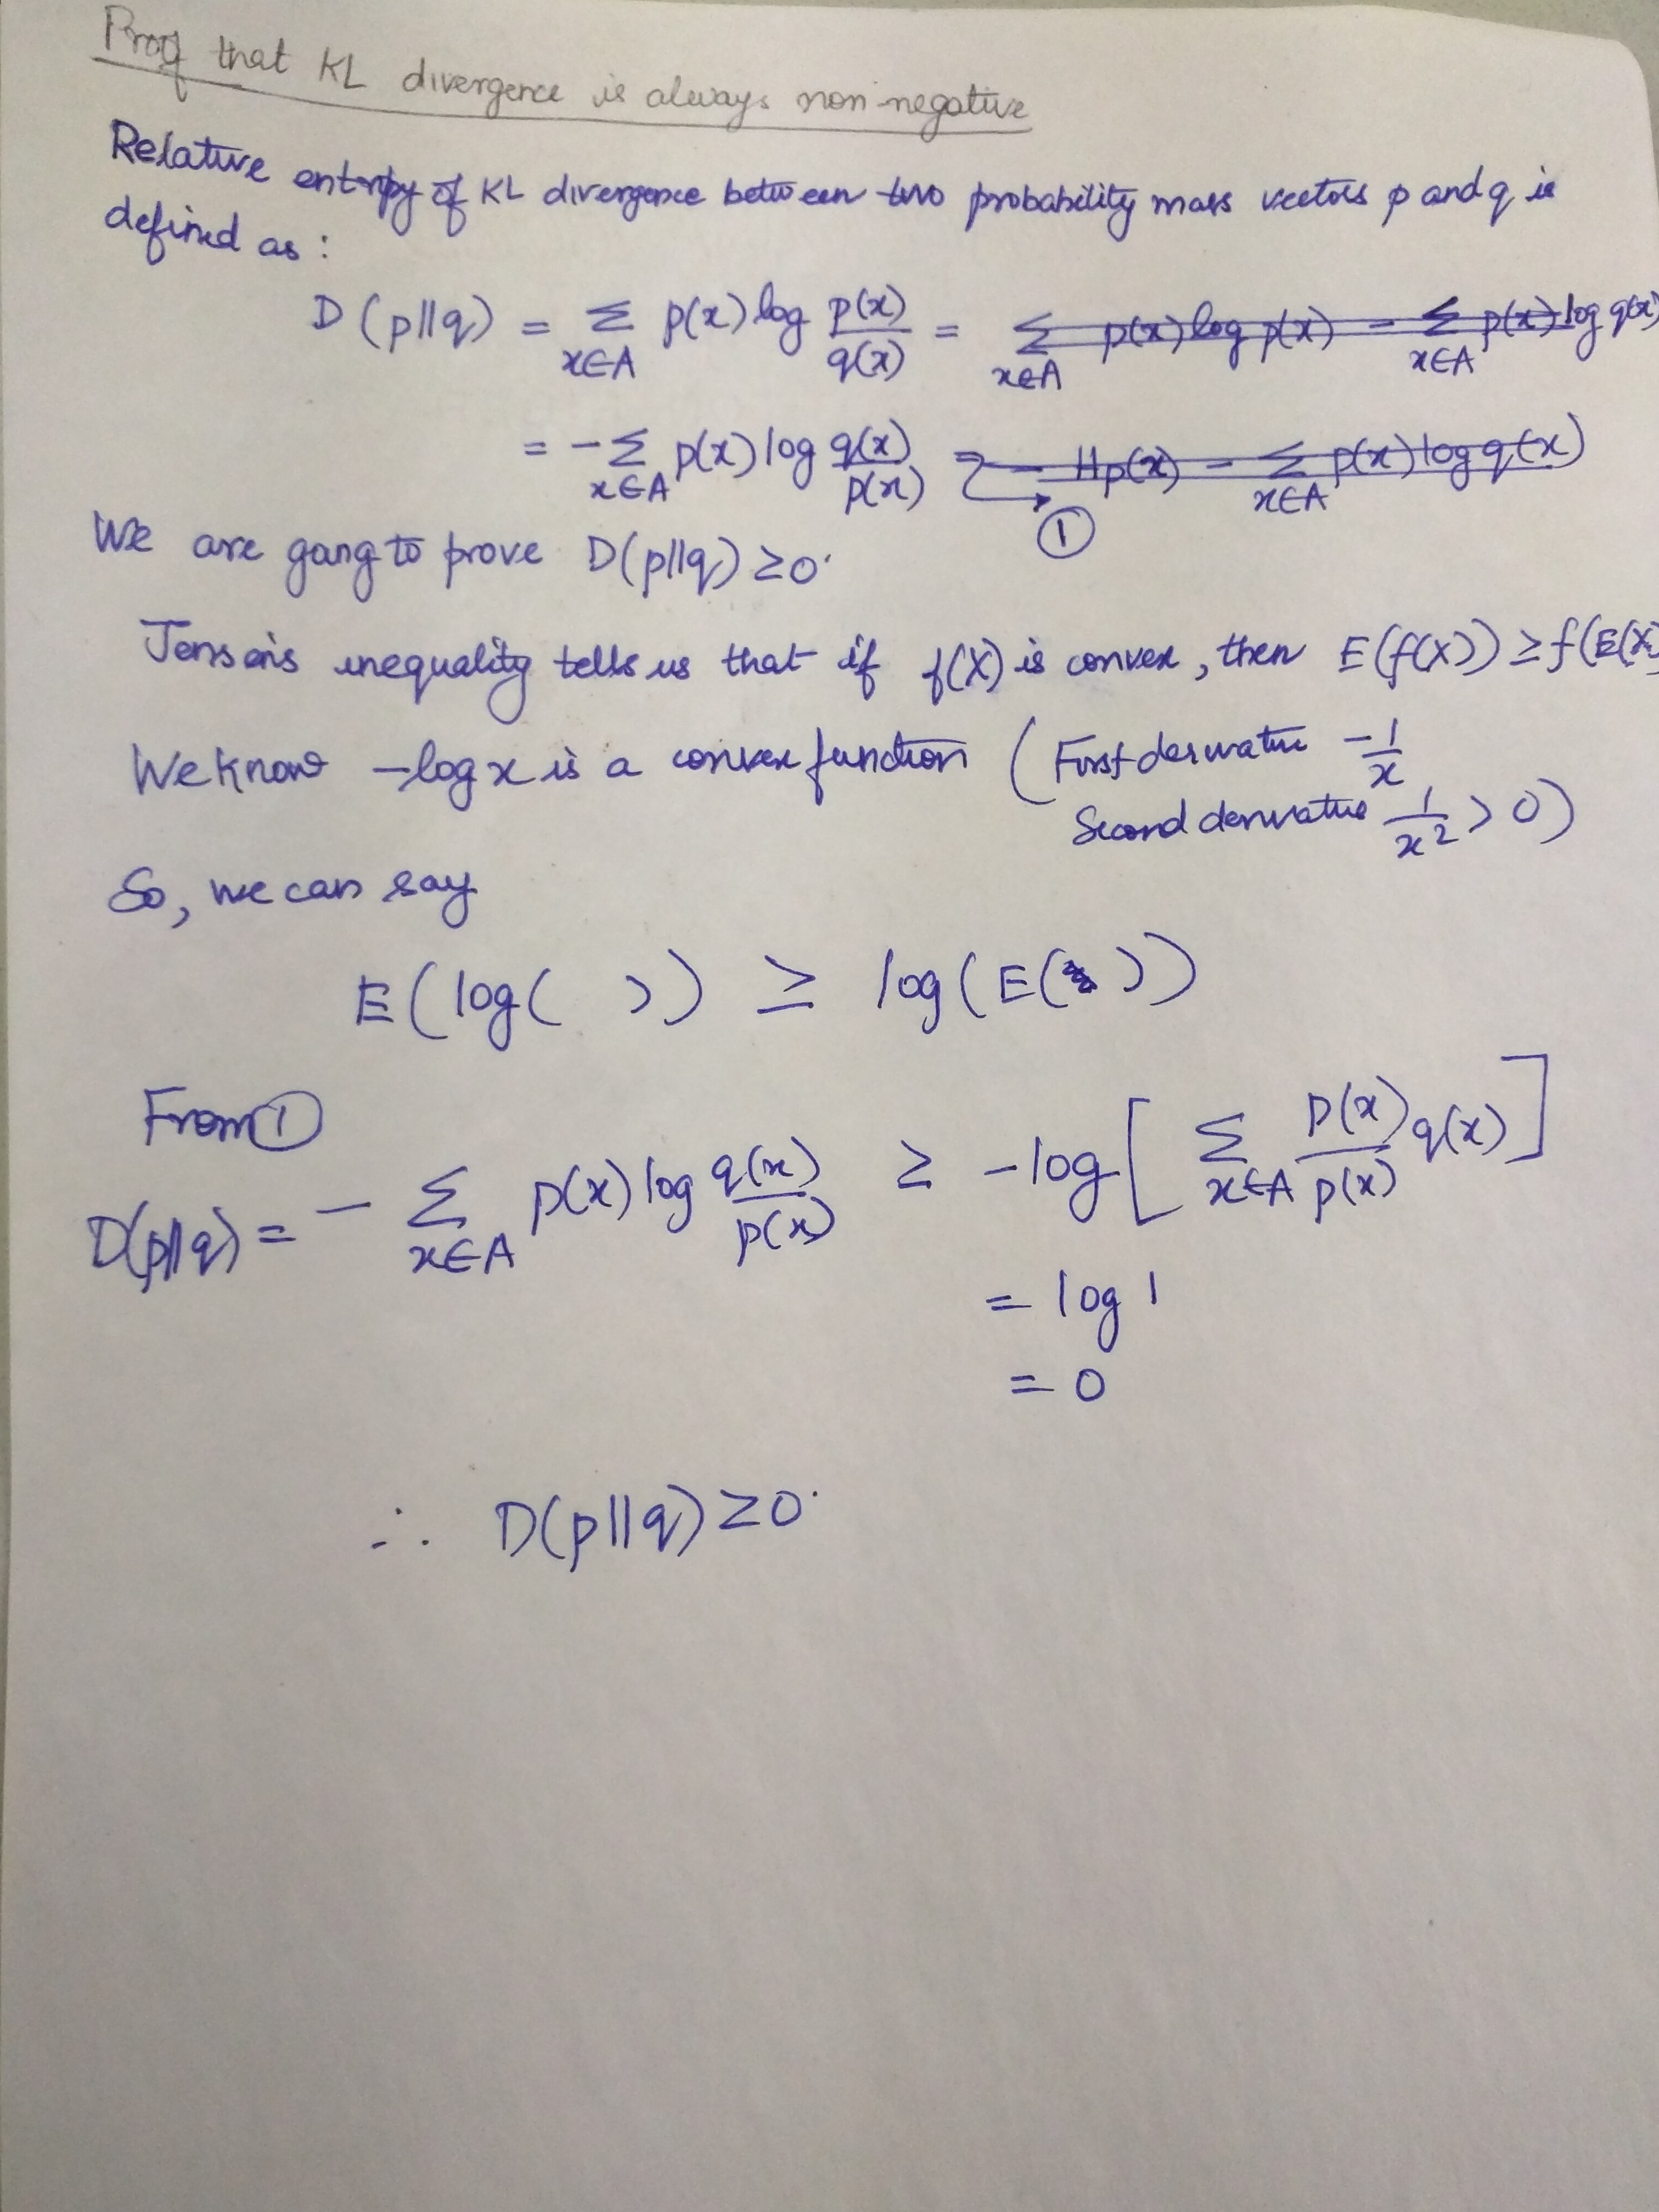 Proof that KL divergence is always non-negative
Relative entropy of KL divergence between two probability mass vectors p and q is
defined as :
D(p||q) = Σ_{x∈A} p(x) log p(x)/q(x) = Σ_{x∈A} p(x) log p(x) - Σ_{x∈A} p(x) log q(x)
= -Σ_{x∈A} p(x) log q(x)/p(x) = - Hp(x) - Σ_{x∈A} p(x) log q(x)
①
We are going to prove D(p||q) ≥ 0.
Jensen's inequality tells us that if f(X) is convex, then E(f(X)) ≥ f(E(X)
We know -log x is a convex function ( First derivative -1/x
Second derivative 1/x² > 0)
So, we can say
E(log( )) ≥ log(E( ))
From ①
D(p||q) = - Σ_{x∈A} p(x) log q(x)/p(x) ≥ -log[ Σ_{x∈A} p(x)/p(x) q(x) ]
= log 1
= 0
∴ D(p||q) ≥ 0.